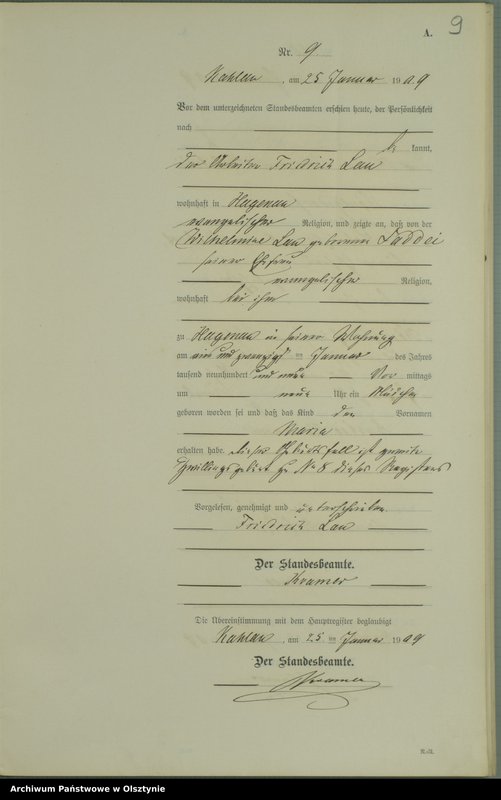 A. 9
Nr. 9.
Kahlau, am 25 Januar 1909
Vor dem unterzeichneten Standesbeamten erschien heute, der Persönlichkeit
nach
kannt,
der Arbeiter Friedrich Lau
wohnhaft in Hagenau
evangelischer Religion, und zeigte an, daß von der
Wilhelmine Lau geborenen Taddei
seiner Ehefrau
evangelischer Religion,
wohnhaft bei ihm
zu Hagenau in seiner Wohnung
am ein und zwanzigsten Januar des Jahres
tausend neunhundert und neun Vor mittags
um neun Uhr ein Mädchen
geboren worden sei und daß das Kind den Vornamen
Maria
erhalten habe. Dieser Geburtsfall ist zweite
Zwillingsgeburt zu No 8 dieses Registers
Vorgelesen, genehmigt und unterschrieben
Friedrich Lau
Der Standesbeamte.
Kramer
Die Übereinstimmung mit dem Hauptregister beglaubigt
Kahlau, am 25. ten Januar 1909
Der Standesbeamte.
Kramer
Archiwum Państwowe w Olsztynie